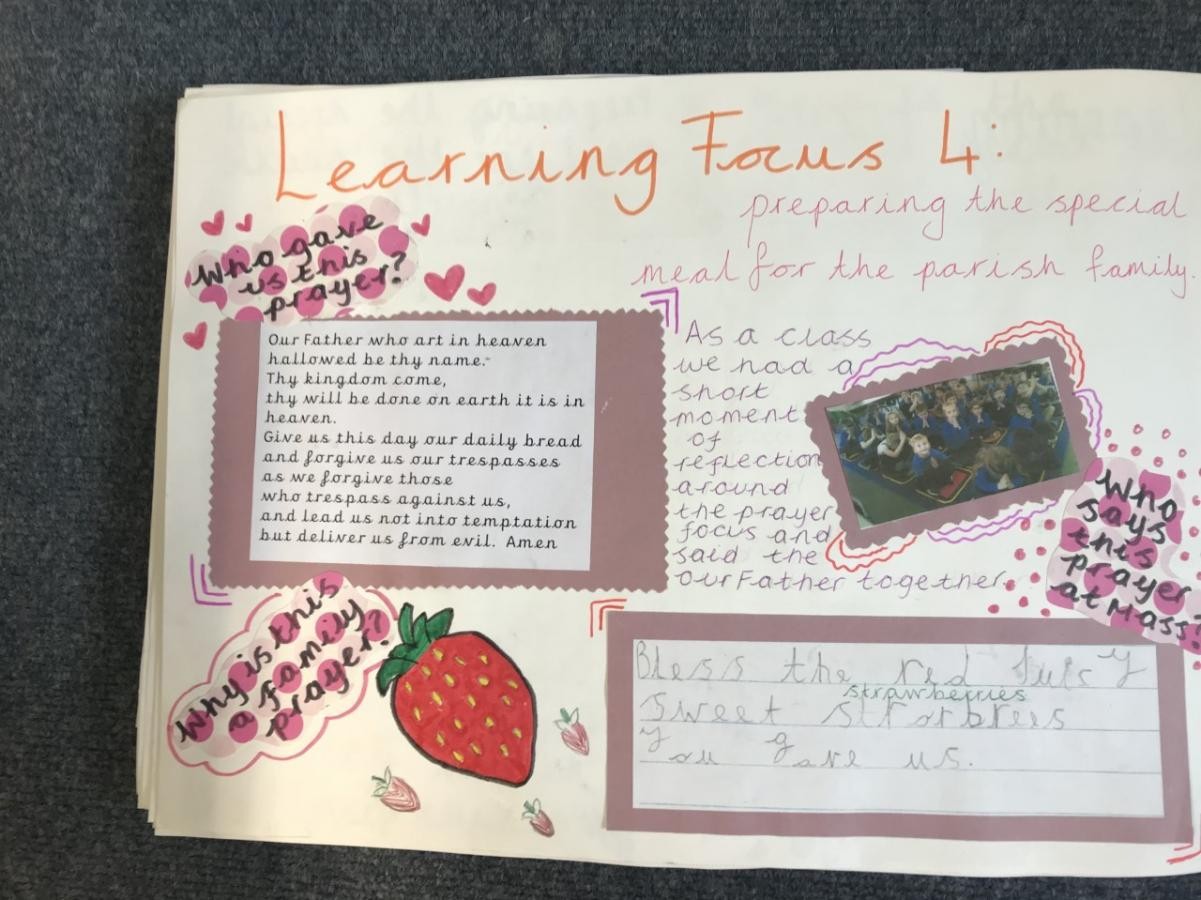 Learning Focus 4:
preparing the special
meal for the parish family.
Who gave
us this
prayer?
Our Father who art in heaven
hallowed be thy name.
Thy kingdom come,
thy will be done on earth it is in
heaven.
Give us this day our daily bread
and forgive us our trespasses
as we forgive those
who trespass against us,
and lead us not into temptation
but deliver us from evil. Amen
As a class
we had a
short
moment
of
reflection
around
the prayer
focus and
said the
Our Father together.
Who
says
this
prayer
at Mass?
Why is this
a family
prayer?
Bless the red juicy
strawberries
Sweet strorbrees
You gave us.